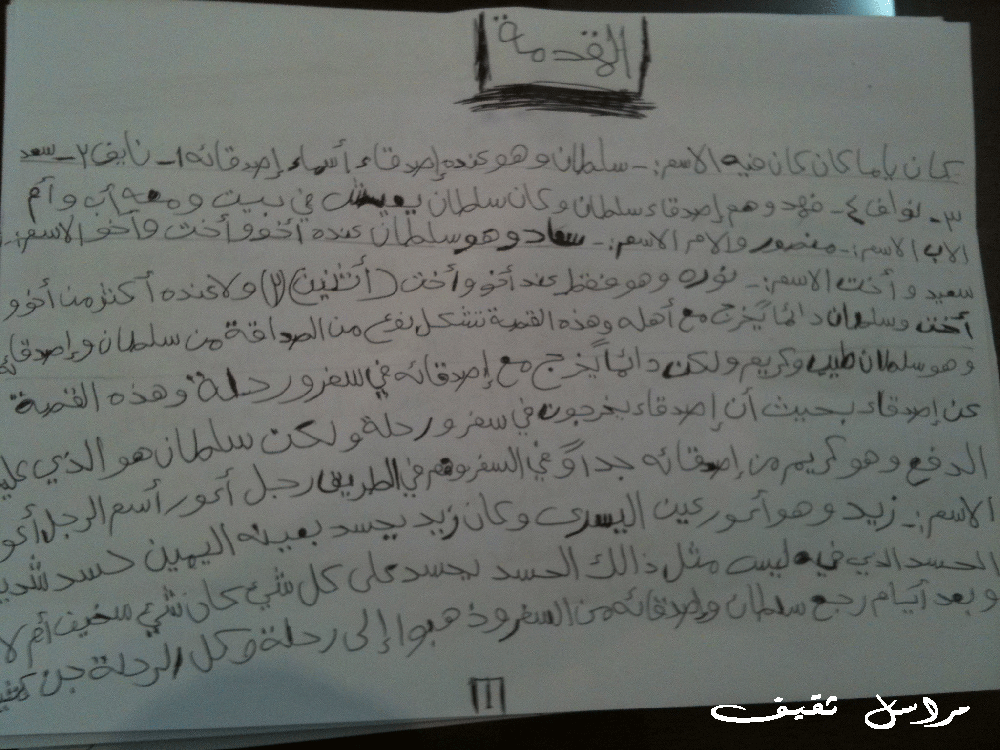 المقدمة
كان ياما كان كان فيه الاسم:- سلطان وهو عنده إصدقاء أسماء إصدقائه ١- نايف ٢- سعد
٣- نواف ٤- فهد وهم إصدقاء سلطان وكان سلطان يعيش في بيت ومعه أب وأم
الاب الاسم:- منصور والام الاسم:- سعاد وهو سلطان عنده أخو وأخت وأخو الاسم:-
سعيد وأخت الاسم:- نوره وهو فقط عند أخو وأخت (أثنين)(٢) ولا عنده أكثر من أخو و
أخت وسلطان دائماً يخرج مع أهله وهذه القصة تتشكل نوع من الصداقة من سلطان وإصدقائه
وهو سلطان طيب وكريم ولكن دائماً يخرج مع إصدقائه في سفر ورحلة وهذه القصة
عن إصدقاء بحيث أن إصدقاء يخرجون في سفر ورحلة ولكن سلطان هو الذي عليه
الدفع وهو كريم من إصدقائه جداً وفي السفر وهم في الطريق رجل أعور أسم الرجل أعو
الاسم:- زيد وهو أعور عين اليسرى وكان زيد يحسد بعينه اليمين حسد شديد
الحسد الذي فيه ليس مثل ذالك الحسد يحسد على كل شيء كان شيء سخيف أم لا
وبعد أيام رجع سلطان وإصدقائه من السفر وذهبوا إلى رحلة وكل الرحلة جن
1
مراسل ثقيف